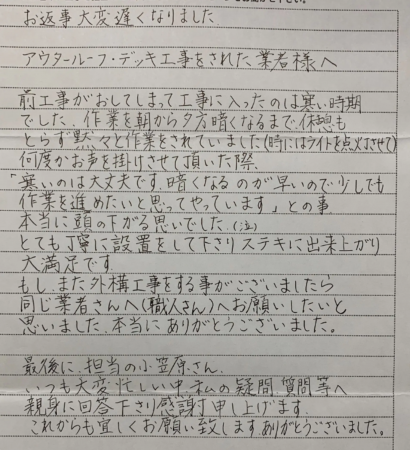 お返事大変遅くなりました
アウタールーフ・デッキ工事をされた業者様へ
前工事がおしてしまって工事に入ったのは寒い時期
でした。作業を朝から夕方暗くなるまで、休憩も
とらず黙々と作業をされていました(時にはライトを点灯させて)
何度かお声を掛けさせて頂いた際、
「寒いのは大丈夫です。暗くなるのが早いので少しでも
作業を進めたいと思ってやっています」との事
本当に頭の下がる思いでした。(泣)
とても丁寧に設置をして下さりステキに出来上がり
大満足です
もし、また外構工事をする事がございましたら
同じ業者さんへ(職人さん)へお願いしたいと
思いました。本当にありがとうございました。
最後に、担当の小笠原さん
いつも大変忙しい中、私の疑問質問等へ
親身に回答下さり感謝申し上げます。
これからも宜しくお願い致します。ありがとうございました。